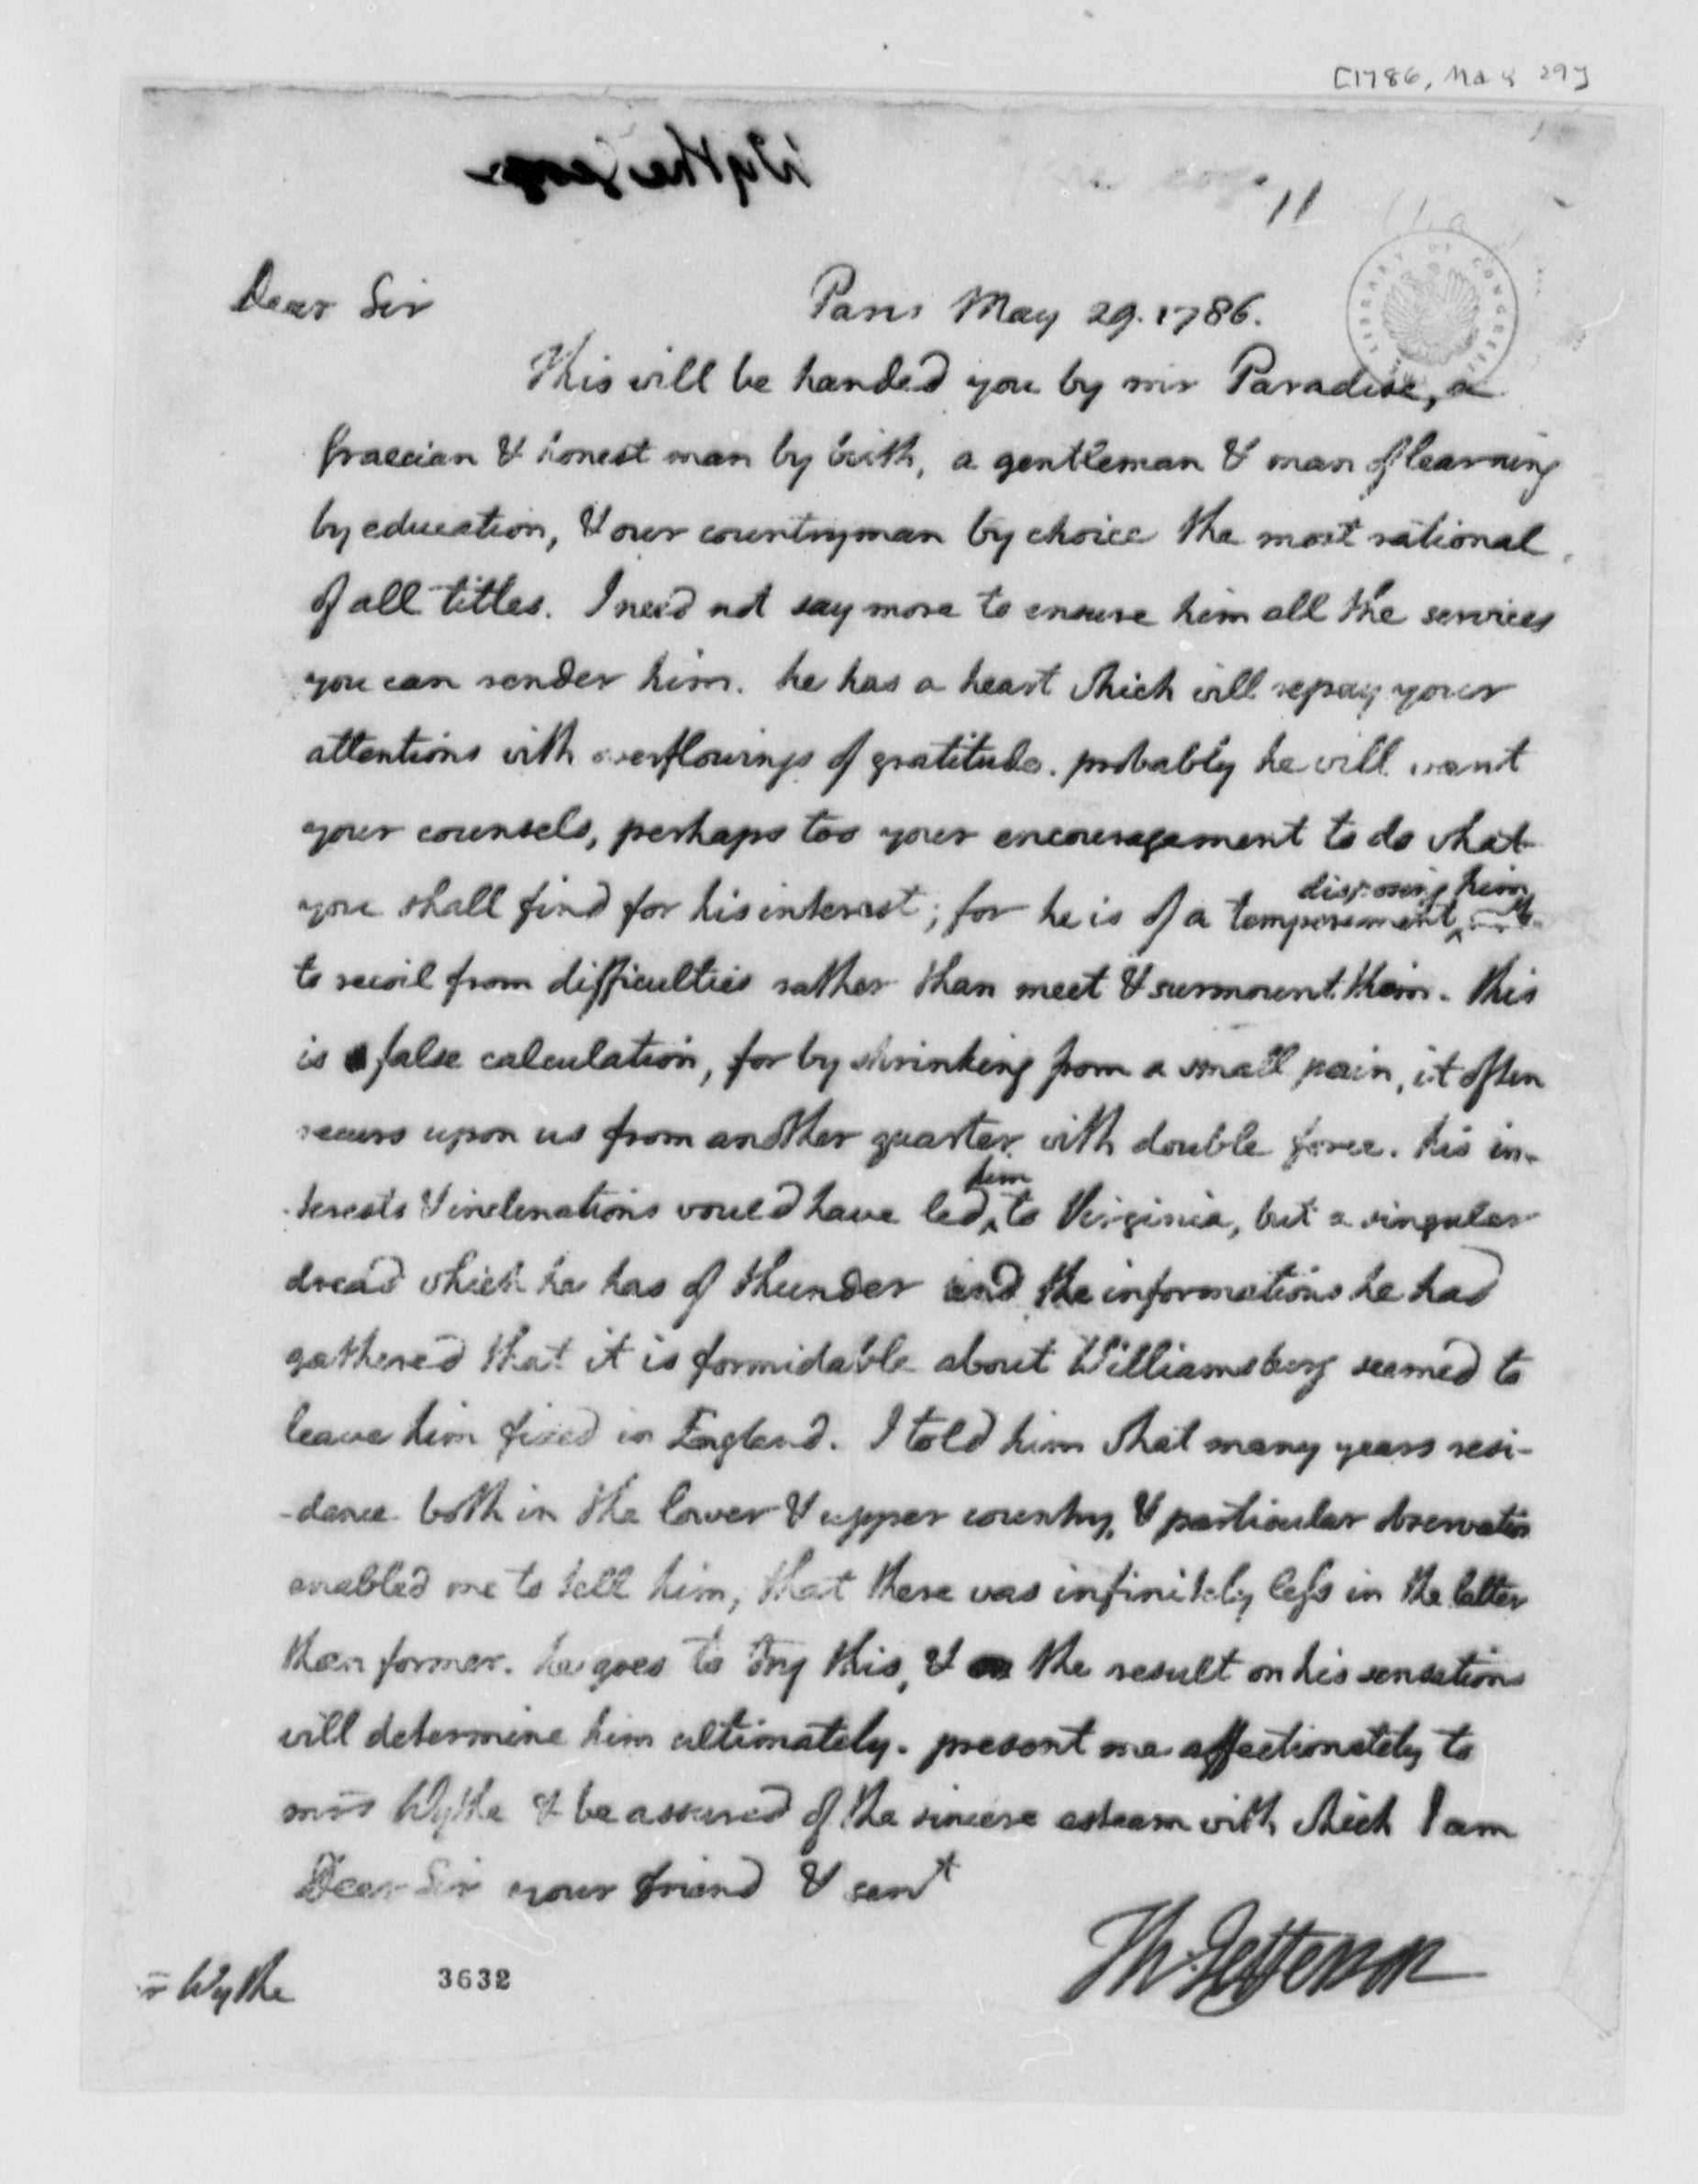 [1786, May 29]
Wythe George
11
LIBRARY OF CONGRESS
Dear Sir Paris May 29. 1786.
This will be handed you by mr Paradise, a
Graecian & honest man by birth, a gentleman & man of learning
by education, & our countryman by choice the most rational
of all titles. I need not say more to ensure him all the services
you can render him. he has a heart which will repay your
attentions with overflowings of gratitude. probably he will want
your counsels, perhaps too your encouragement to do what
you shall find for his interest; for he is of a temperament disposing him
to recoil from difficulties rather than meet & surmount them. this
is a false calculation, for by shrinking from a small pain, it often
recurs upon us from another quarter with double force. his in-
terests & inclinations would have led him to Virginia, but a singular
dread which he has of thunder and the informations he had
gathered that it is formidable about Williamsburg seemed to
leave him fixed in England. I told him that many years resi-
-dence both in the lower & upper country, & particular observation
enabled me to tell him, that there was infinitely less in the latter
than former. he goes to try this, & the result on his sensations
will determine him ultimately. present me affectionately to
mrs Wythe & be assured of the sincere esteem with which I am
Dear Sir your friend & servt
Th: Jefferson
Wythe
3632